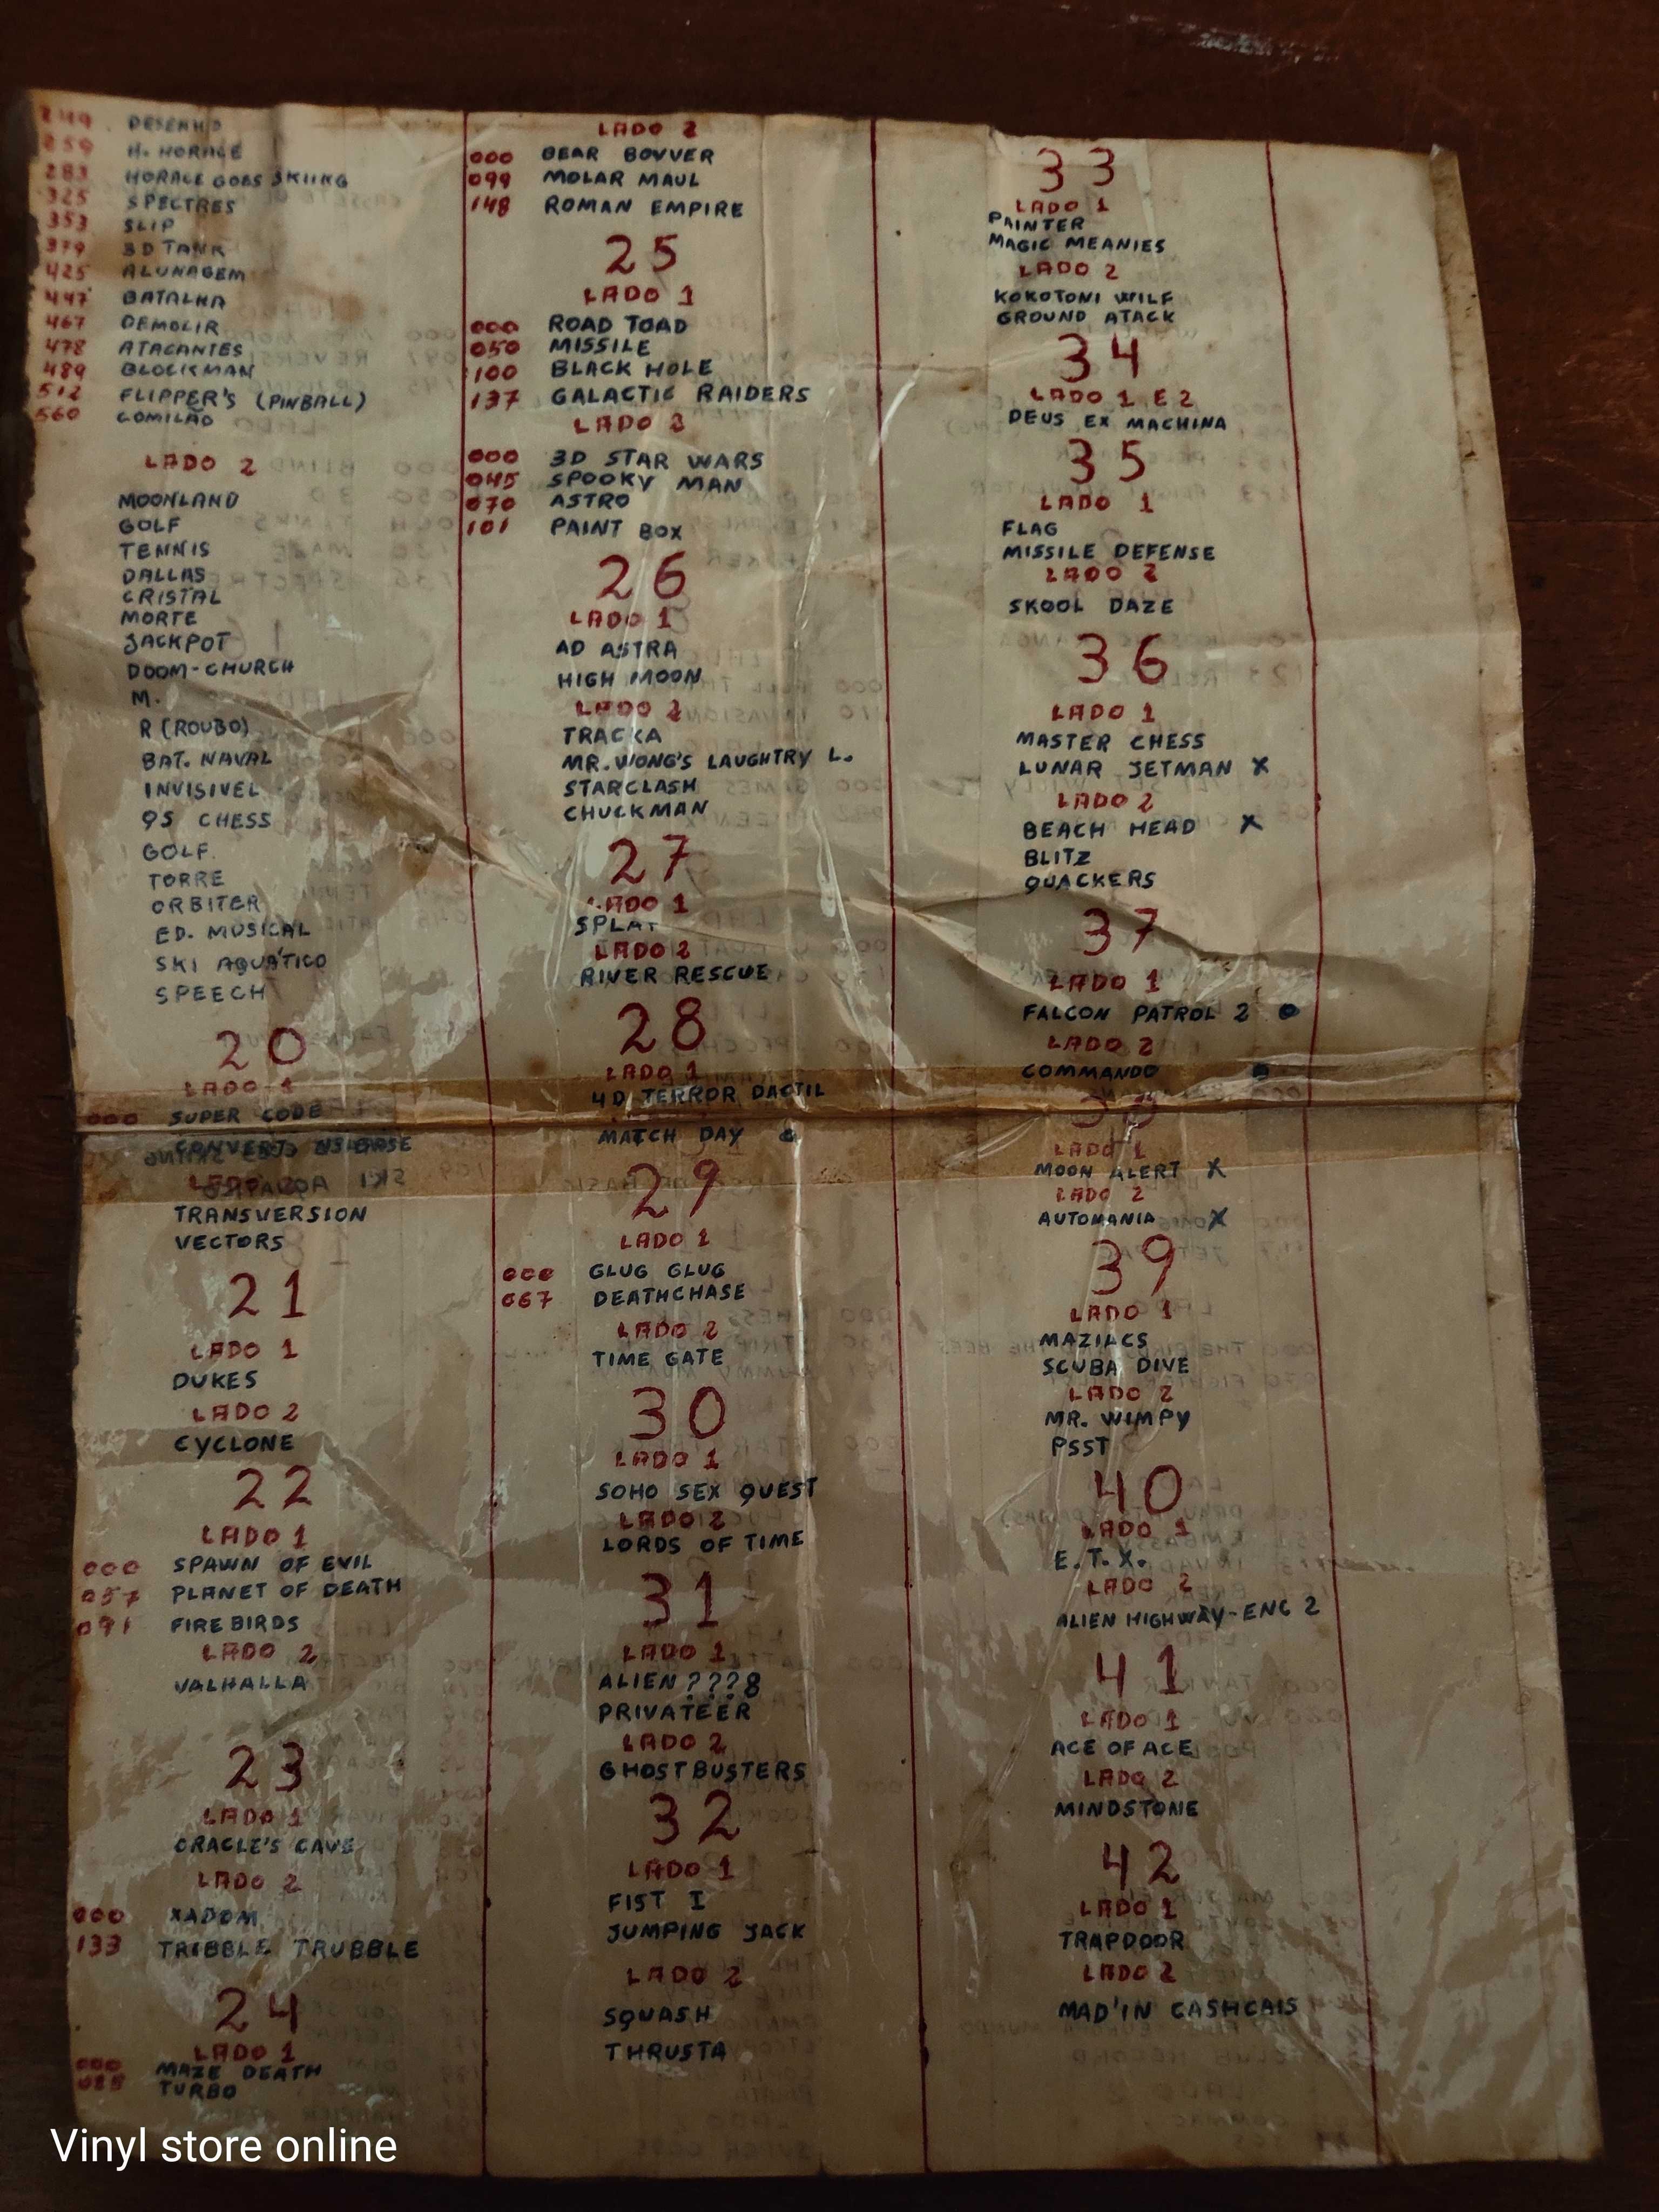 249 DESENHO
259 H. HORACE
283 HORACE GOES SKIING
325 SPECTRES
353 SLIP
379 3D TANK
425 ALUNAGEM
447 BATALHA
467 DEMOLIR
478 ATACANTES
489 BLOCKMAN
512 FLIPPER'S (PINBALL)
560 COMILÃO
LADO 2
MOONLAND
GOLF
TENNIS
DALLAS
CRISTAL
MORTE
JACKPOT
DOOM-CHURCH
M.
R (ROUBO)
BAT. NAVAL
INVISIVEL
QS CHESS
GOLF
TORRE
ORBITER
ED. MUSICAL
SKI AQUÁTICO
SPEECH
20
LADO 1
000 SUPER CODE
LADO
TRANSVERSION
VECTORS
21
LADO 1
DUKES
LADO 2
CYCLONE
22
LADO 1
000 SPAWN OF EVIL
057 PLANET OF DEATH
091 FIREBIRDS
LADO 2
VALHALLA
23
LADO 1
ORACLE'S CAVE
LADO 2
000 XADOM
133 TRIBBLE TRUBBLE
24
LADO 1
000 MAZE DEATH
TURBO
LADO 2
000 BEAR BOVVER
099 MOLAR MAUL
148 ROMAN EMPIRE
25
LADO 1
000 ROAD TOAD
050 MISSILE
100 BLACK HOLE
137 GALACTIC RAIDERS
LADO 2
000 3D STAR WARS
045 SPOOKY MAN
070 ASTRO
101 PAINT BOX
26
LADO 1
AD ASTRA
HIGH MOON
LADO 2
TRACKA
MR. WONG'S LAUGHTRY L.
STARCLASH
CHUCKMAN
27
LADO 1
SPLAT
LADO 2
RIVER RESCUE
28
LADO 1
4D TERROR DACTIL
MATCH DAY
29
LADO 1
000 GLUG GLUG
067 DEATHCHASE
LADO 2
TIME GATE
30
LADO 1
SOHO SEX QUEST
LADO 2
LORDS OF TIME
31
LADO 1
ALIEN ???8
PRIVATEER
LADO 2
GHOSTBUSTERS
32
LADO 1
FIST I
JUMPING JACK
LADO 2
SQUASH
THRUSTA
33
LADO 1
PAINTER
MAGIC MEANIES
LADO 2
KOKOTONI WILF
GROUND ATACK
34
LADO 1 E 2
DEUS EX MACHINA
35
LADO 1
FLAG
MISSILE DEFENSE
LADO 2
SKOOL DAZE
36
LADO 1
MASTER CHESS
LUNAR JETMAN X
LADO 2
BEACH HEAD X
BLITZ
QUACKERS
37
LADO 1
FALCON PATROL 2
LADO 2
COMMANDO
38
LADO 1
MOON ALERT X
LADO 2
AUTOMANIA X
39
LADO 1
MAZIACS
SCUBA DIVE
LADO 2
MR. WIMPY
PSST
40
LADO 1
E.T.X.
LADO 2
ALIEN HIGHWAY-ENC 2
41
LADO 1
ACE OF ACE
LADO 2
MINDSTONE
42
LADO 1
TRAPDOOR
LADO 2
MAD'IN CASHCAIS
Vinyl store online